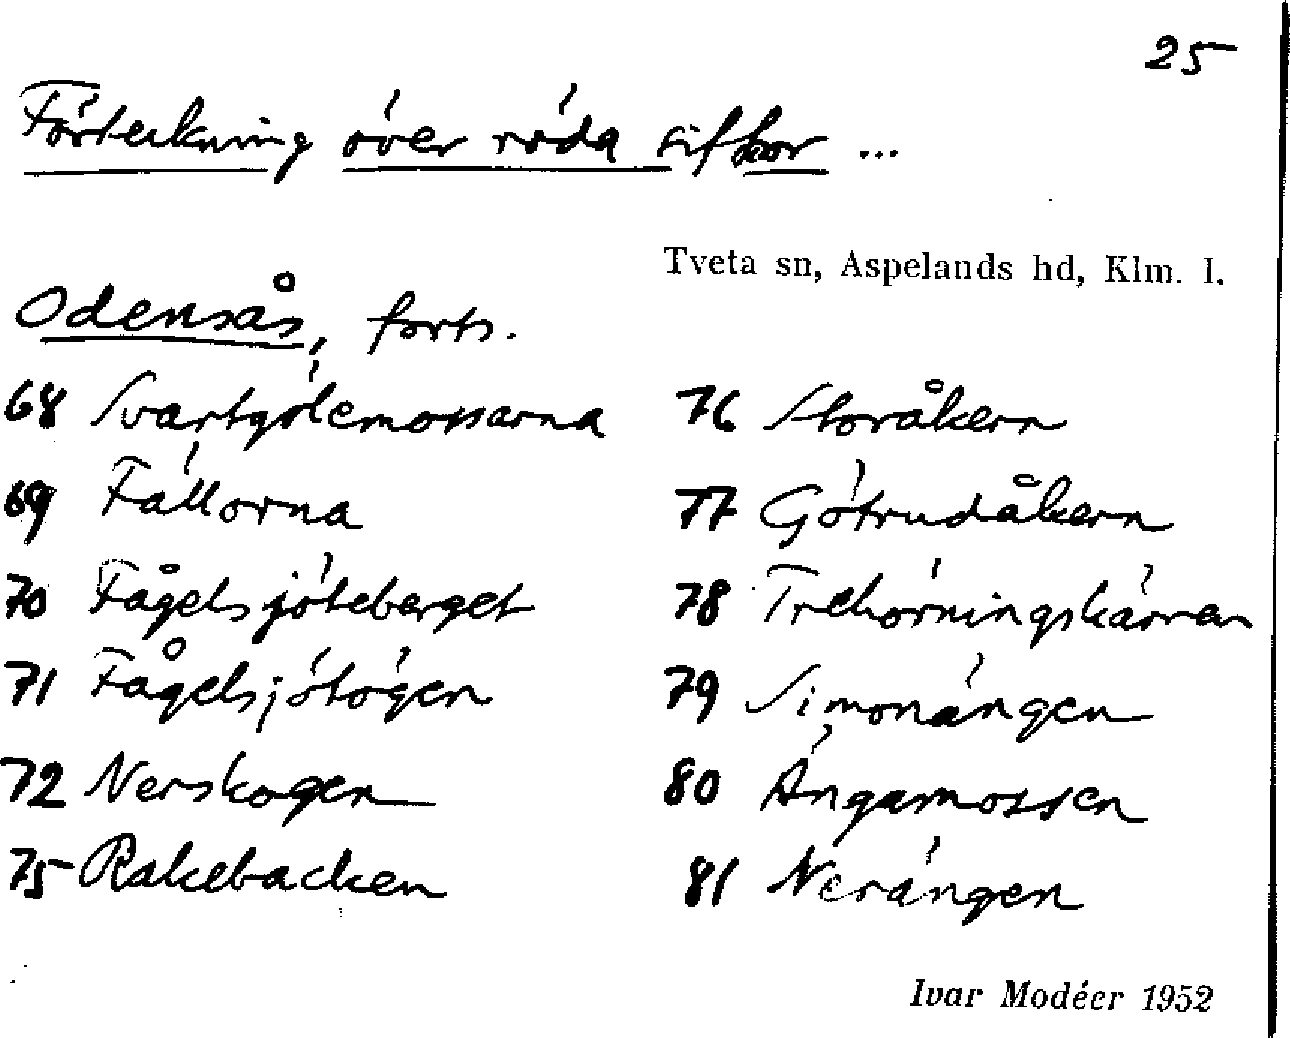 25
Förteckning över röda siffror ...
Tveta sn, Aspelands hd, Klm. l.
Odensås, forts.
68 Svartgölemossarna
69 Fällorna
70 Fågelsjöteberget
71 Fågelsjötögen
72 Nerskogen
75 Rakebacken
76 Storåkern
77 Götrudåkern
78 Trehörningskärren
79 Simonängen
80 Ängamossen
81 Nerängen
Ivar Modéer 1952